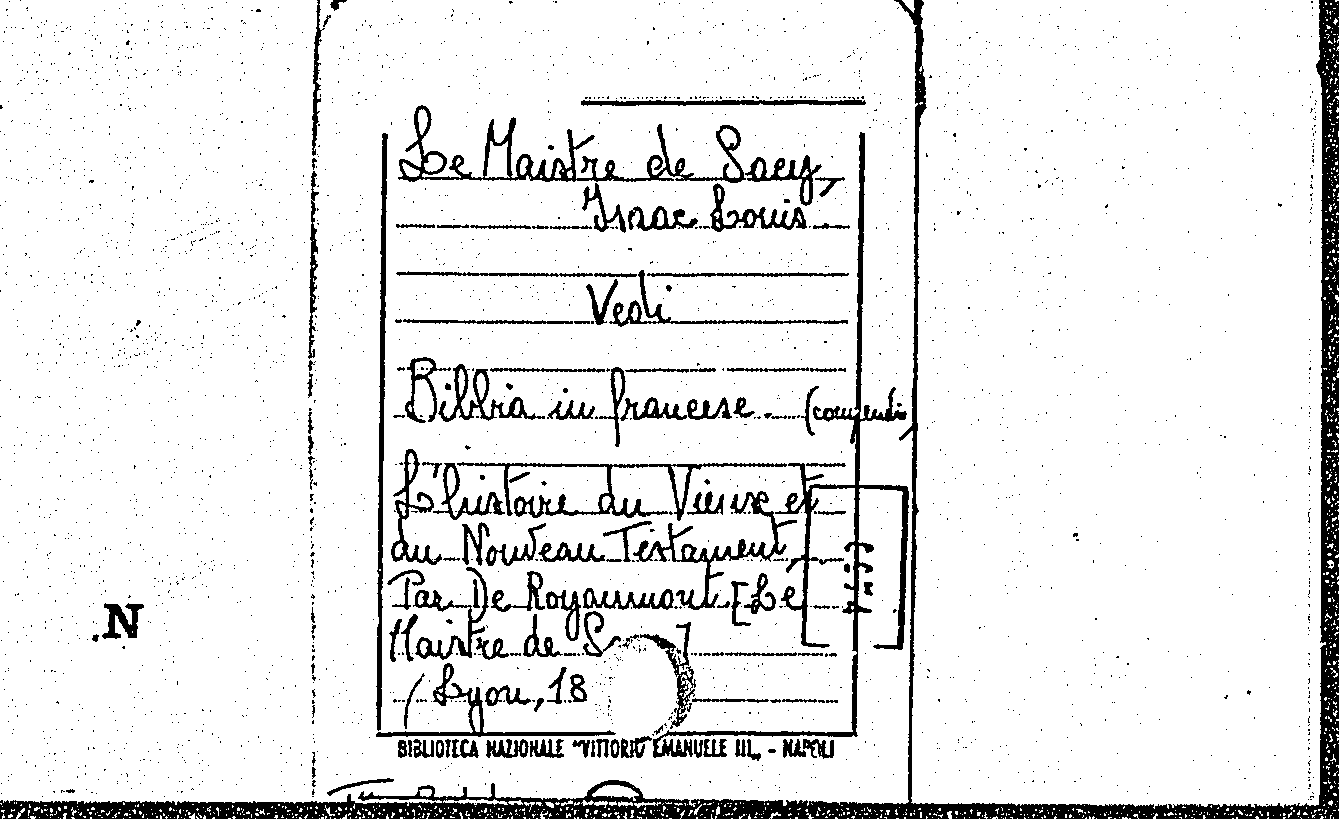 Le Maistre de Sacy,
Isaac Louis.
Vedi
Bibbia in francese. (compendi
L'histoire du Vieux et
du Nouveau Testament,
Par De Royaumont [Le
Maistre de S ]
Lyon, 18
BIBLIOTECA NAZIONALE "VITTORIO EMANUELE III„ - NAPOLI
.N